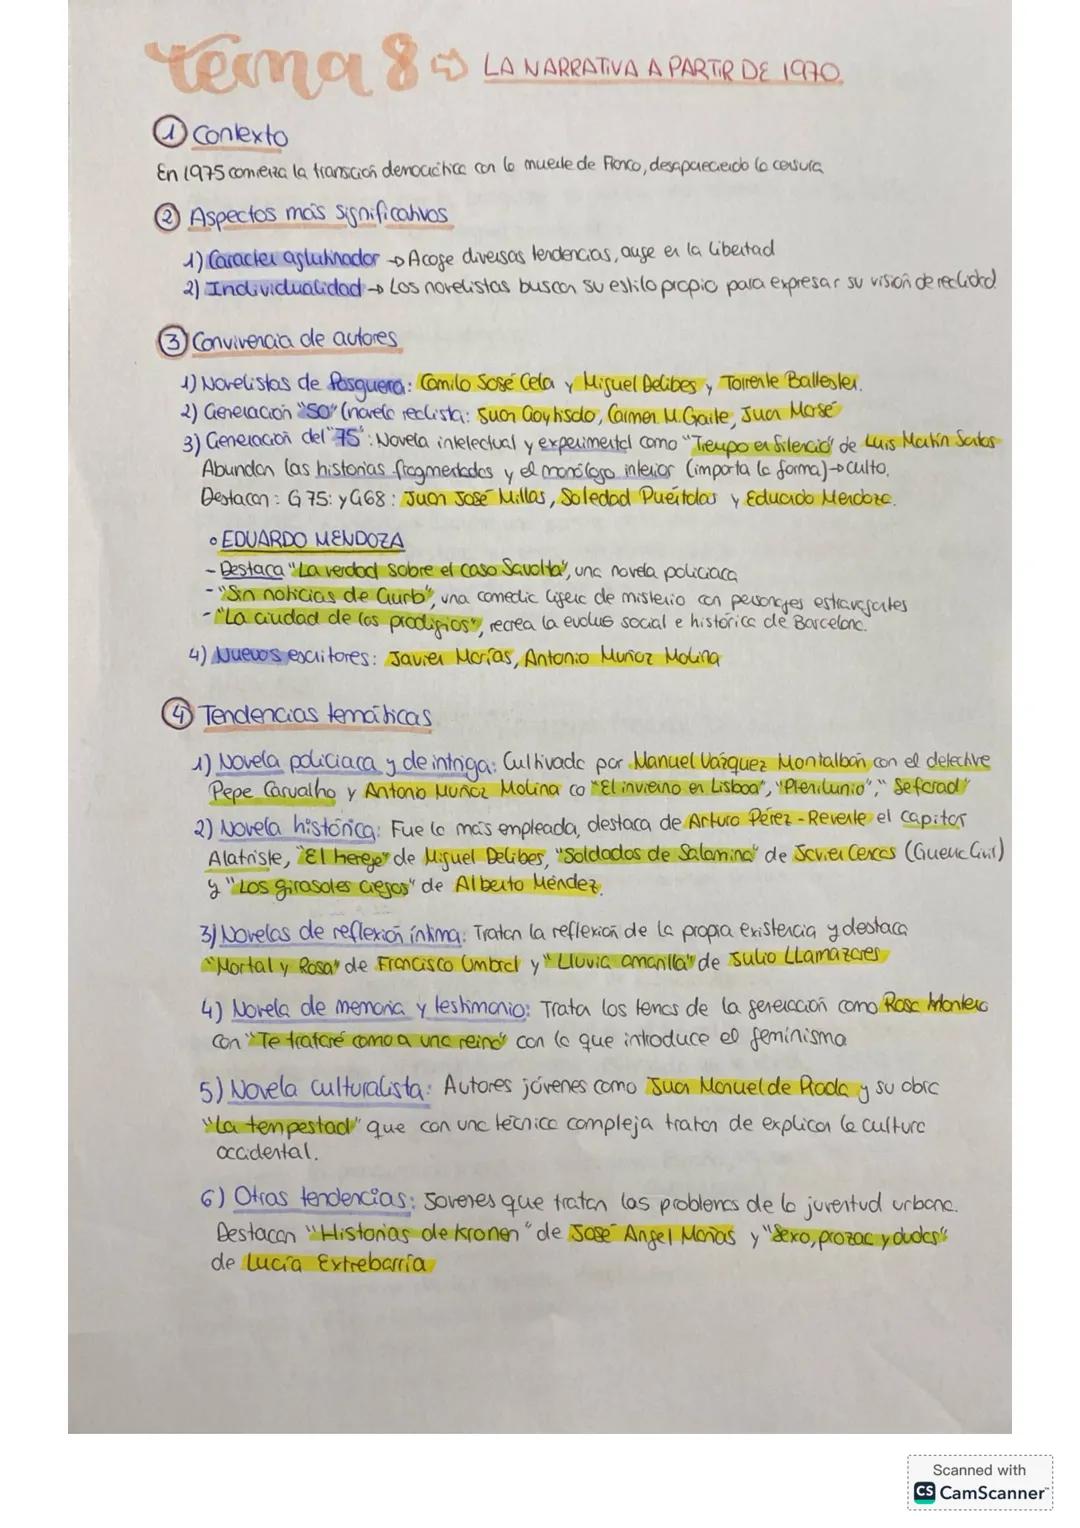 tema 8 ⇨ LA NARRATIVA A PARTIR DE 1970.
① Contexto
En 1975 comienza la transición democrática con la muerte de Franco, desapareciendo la censura
② Aspectos más significativos
1) Carácter aglutinador → Acoge diversas tendencias, auge en la libertad
2) Individualidad → Los novelistas buscan su estilo propio para expresar su visión de realidad.
③ Convivencia de autores
1) Novelistas de Posguerra: Camilo José Cela y Miguel Delibes y Torrente Ballester.
2) Generación "50" (novela realista: Juan Goytisolo, Carmen M. Gaite, Juan Marsé
3) Generación del "75": Novela intelectual y experimental como "Tiempo en Silencio" de Luis Martín Santos
Abundan las historias fragmentadas y el monólogo interior (importa la forma) → culto.
Destacan: G 75: y G68: Juan José Millas, Soledad Puértolas y Eduardo Mendoza.
• EDUARDO MENDOZA
- Destaca "La verdad sobre el caso Savolta", una novela policiaca
- "Sin noticias de Gurb", una comedia ligera de misterio con personajes extravagantes
- "La ciudad de los prodigios", recrea la evolus social e histórica de Barcelona.
4) Nuevos escritores: Javier Marías, Antonio Muñoz Molina
④ Tendencias temáticas
1) Novela policiaca y de intriga: Cultivada por Manuel Vázquez Montalbán con el detective
Pepe Carvalho y Antonio Muñoz Molina co "El invierno en Lisboa", "Plenilunio", "Sefarad"
2) Novela histórica: Fue la más empleada, destaca de Arturo Pérez-Reverte el capitán
Alatriste, "El hereje" de Miguel Delibes, "Soldados de Salamina" de Javier Cercas (Guerra Civil)
y "Los girasoles ciegos" de Alberto Méndez.
3) Novelas de reflexión íntima: Tratan la reflexión de la propia existencia y destaca
"Mortal y Rosa" de Francisco Umbral y "Lluvia amarilla" de Julio Llamazares
4) Novela de memoria y testimonio: Trata los temas de la generación como Rosa Montero
con "Te trataré como a una reina" con la que introduce el feminismo
5) Novela culturalista: Autores jóvenes como Juan Manuel de Prada y su obra
"La tempestad" que con una técnica compleja tratan de explicar la cultura
occidental.
6) Otras tendencias: Jóvenes que tratan los problemas de la juventud urbana.
Destacan "Historias de Kronen" de José Ángel Mañas y "Sexo, prozac y dudas"
de Lucía Extrebarría
Scanned with
CS CamScanner™